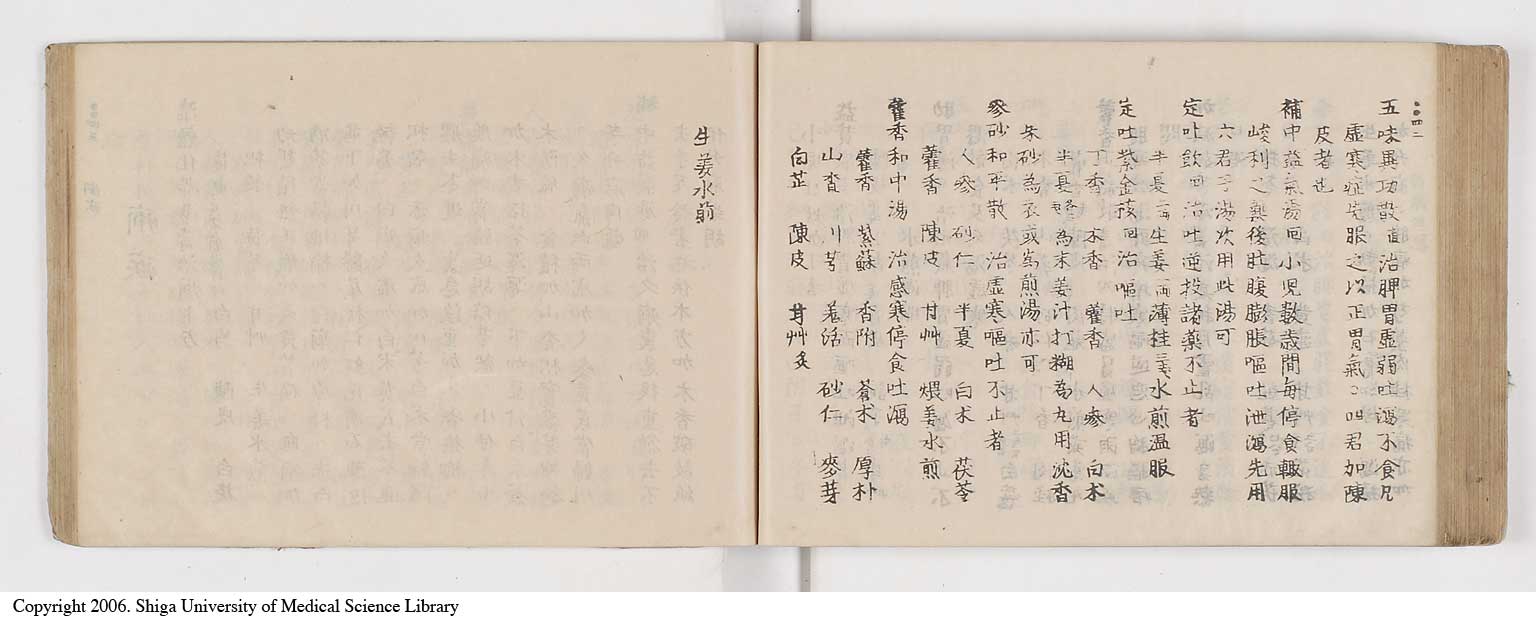 五味異功散 直治脾胃虚弱吐瀉不食凡
虚寒症先服之以正胃氣〻四君加陳
皮者也
補中益氣湯回 小児数歳間毎停食輙服
峻利之藥後肚腹膨脹嘔吐泄瀉先用
六君子湯次用此湯可
定吐飲回 治吐逆投諸藥不止者
半夏 生姜 薄桂 姜水煎温服
定吐紫金 回 治嘔吐
丁香 木香 藿香 人參 白朮
半夏 為末姜汁打糊為丸用沈香
朱砂為衣或 煎湯亦可
參砂和平散 治虚寒嘔吐不止者
人參 砂仁 半夏 白朮 茯苓
藿香 陳皮 甘艸 煨姜水煎
藿香和中湯 治感寒停食吐瀉
藿香 紫蘇 香附 蒼朮 厚朴
山査 川芎 羌活 砂仁 麥芽
白芷 陳皮 甘艸炙
生姜水煎
Copyright 2006. Shiga University of Medical Science Library